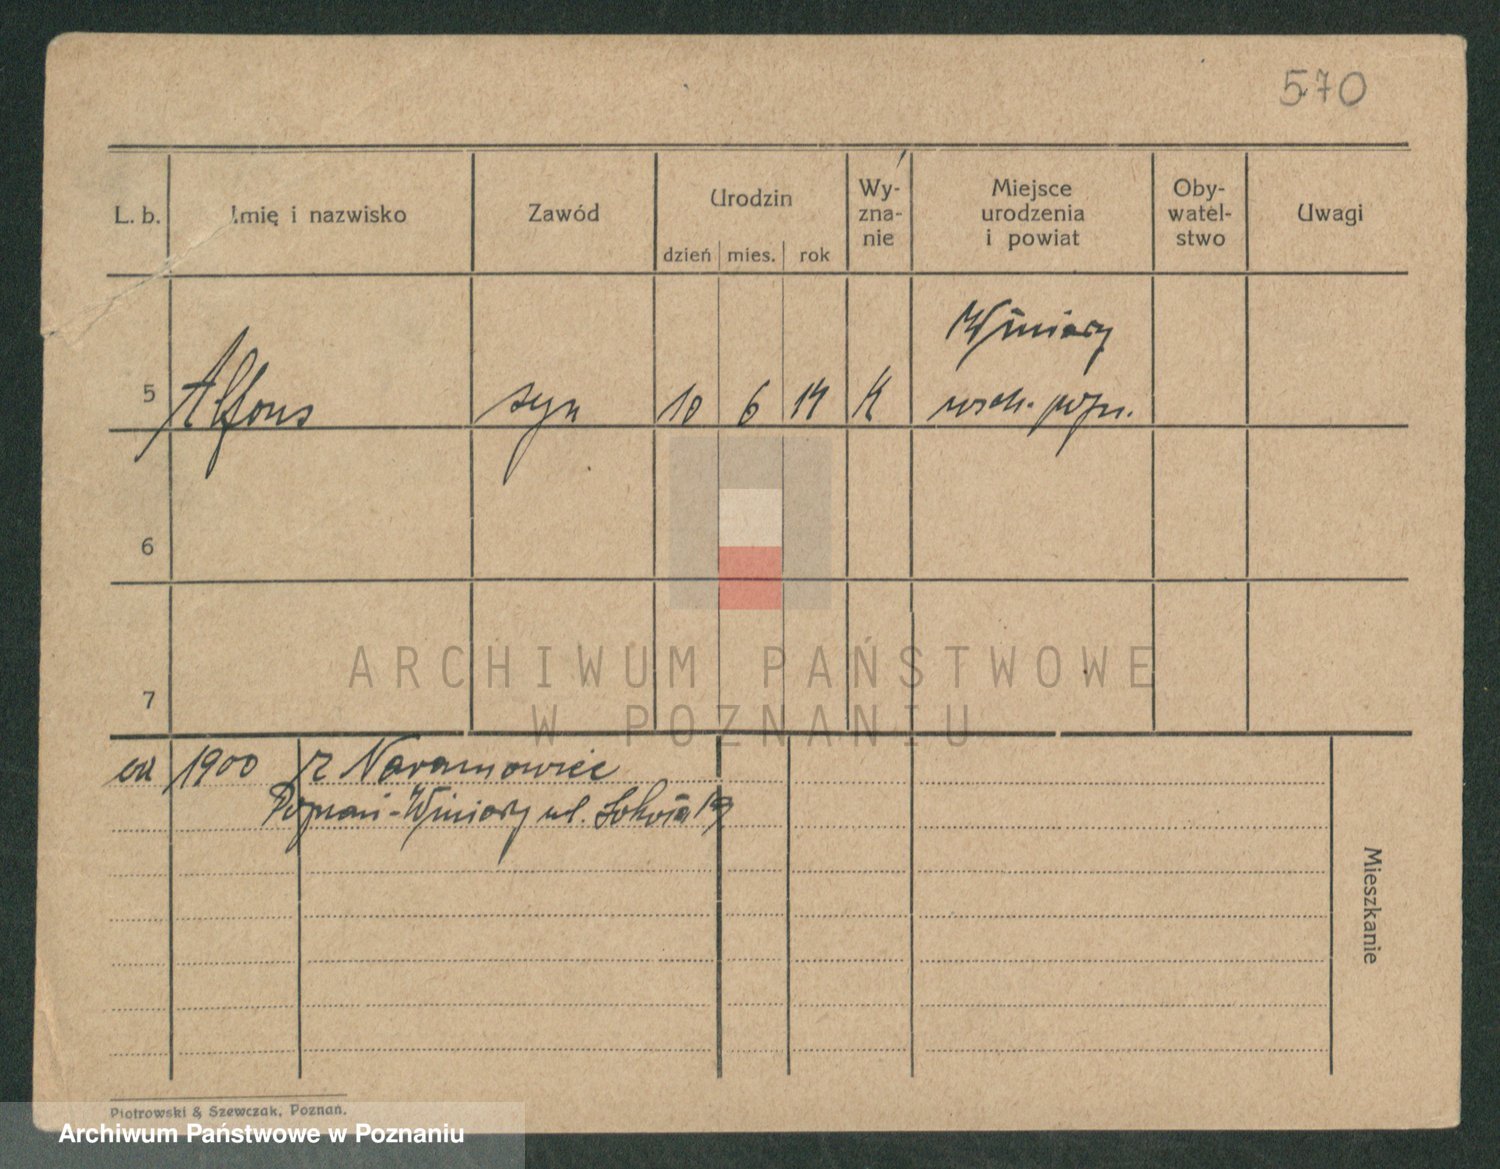 570
L. b.
Imię i nazwisko
Zawód
Urodzin
dzień mies. rok
Wy-
zna-
nie
Miejsce
urodzenia
i powiat
Oby-
watel-
stwo
Uwagi
Winiary
5 Alfons syn 10 6 14 K wsch. pozn.
6
ARCHIWUM PAŃSTWOWE
W POZNANIU
7
od 1900 z Naramowic
Poznań-Winiary ul.
Mieszkanie
Piotrowski & Szewczak, Poznań.
Archiwum Państwowe w Poznaniu